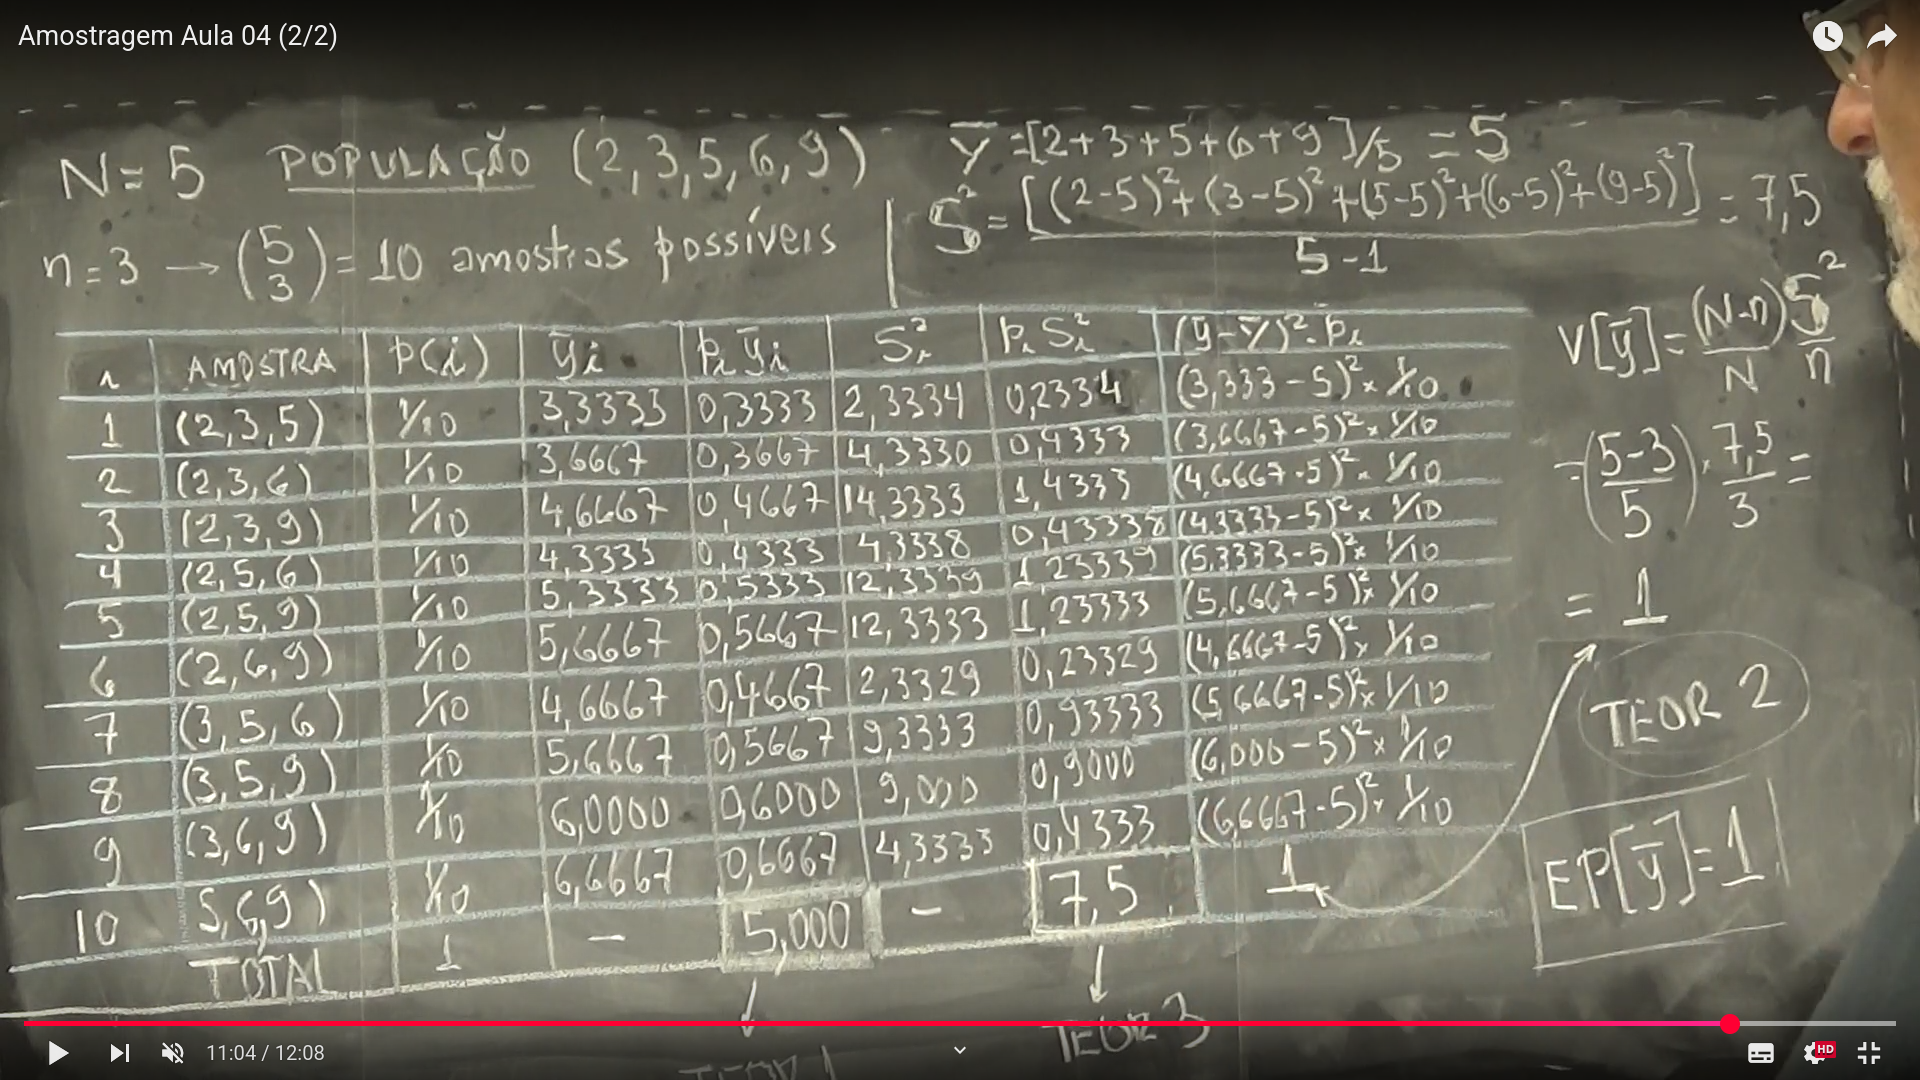 Amostragem Aula 04 (2/2)
N = 5 POPULAÇÃO (2, 3, 5, 6, 9)
n = 3 → (5 3) = 10 amostras possíveis
Y̅ = [2+3+5+6+9]/5 = 5
S² = [(2-5)²+(3-5)²+(5-5)²+(6-5)²+(9-5)²] / 5-1 = 7,5
i AMOSTRA P(i) y̅i pi y̅i Si² pi Si² (y̅-Y̅)². pi
1 (2,3,5) 1/10 3,3333 0,3333 2,3334 0,2334 (3,333-5)² x 1/10
2 (2,3,6) 1/10 3,6667 0,3667 4,3330 0,4333 (3,6667-5)² x 1/10
3 (2,3,9) 1/10 4,6667 0,4667 14,3333 1,4333 (4,6667-5)² x 1/10
4 (2,5,6) 1/10 4,3333 0,4333 4,3338 0,43338 (4,3333-5)² x 1/10
5 (2,5,9) 1/10 5,3333 0,5333 12,3339 1,23339 (5,3333-5)² x 1/10
6 (2,6,9) 1/10 5,6667 0,5667 12,3333 1,23333 (5,6667-5)² x 1/10
7 (3,5,6) 1/10 4,6667 0,4667 2,3329 0,23329 (4,6667-5)² x 1/10
8 (3,5,9) 1/10 5,6667 0,5667 9,3333 0,93333 (5,6667-5)² x 1/10
9 (3,6,9) 1/10 6,0000 0,6000 9,000 0,9000 (6,000-5)² x 1/10
10 5,6,9) 1/10 6,6667 0,6667 4,3333 0,4333 (6,6667-5)² x 1/10
TOTAL 1 - 5,000 - 7,5 1
V[y̅] = (N-n)/N S²/n
= (5-3 / 5) . 7,5/3 =
= 1
TEOR 2
EP[y̅] = 1
TEOR 3
TEOR 1
11:04 / 12:08
HD